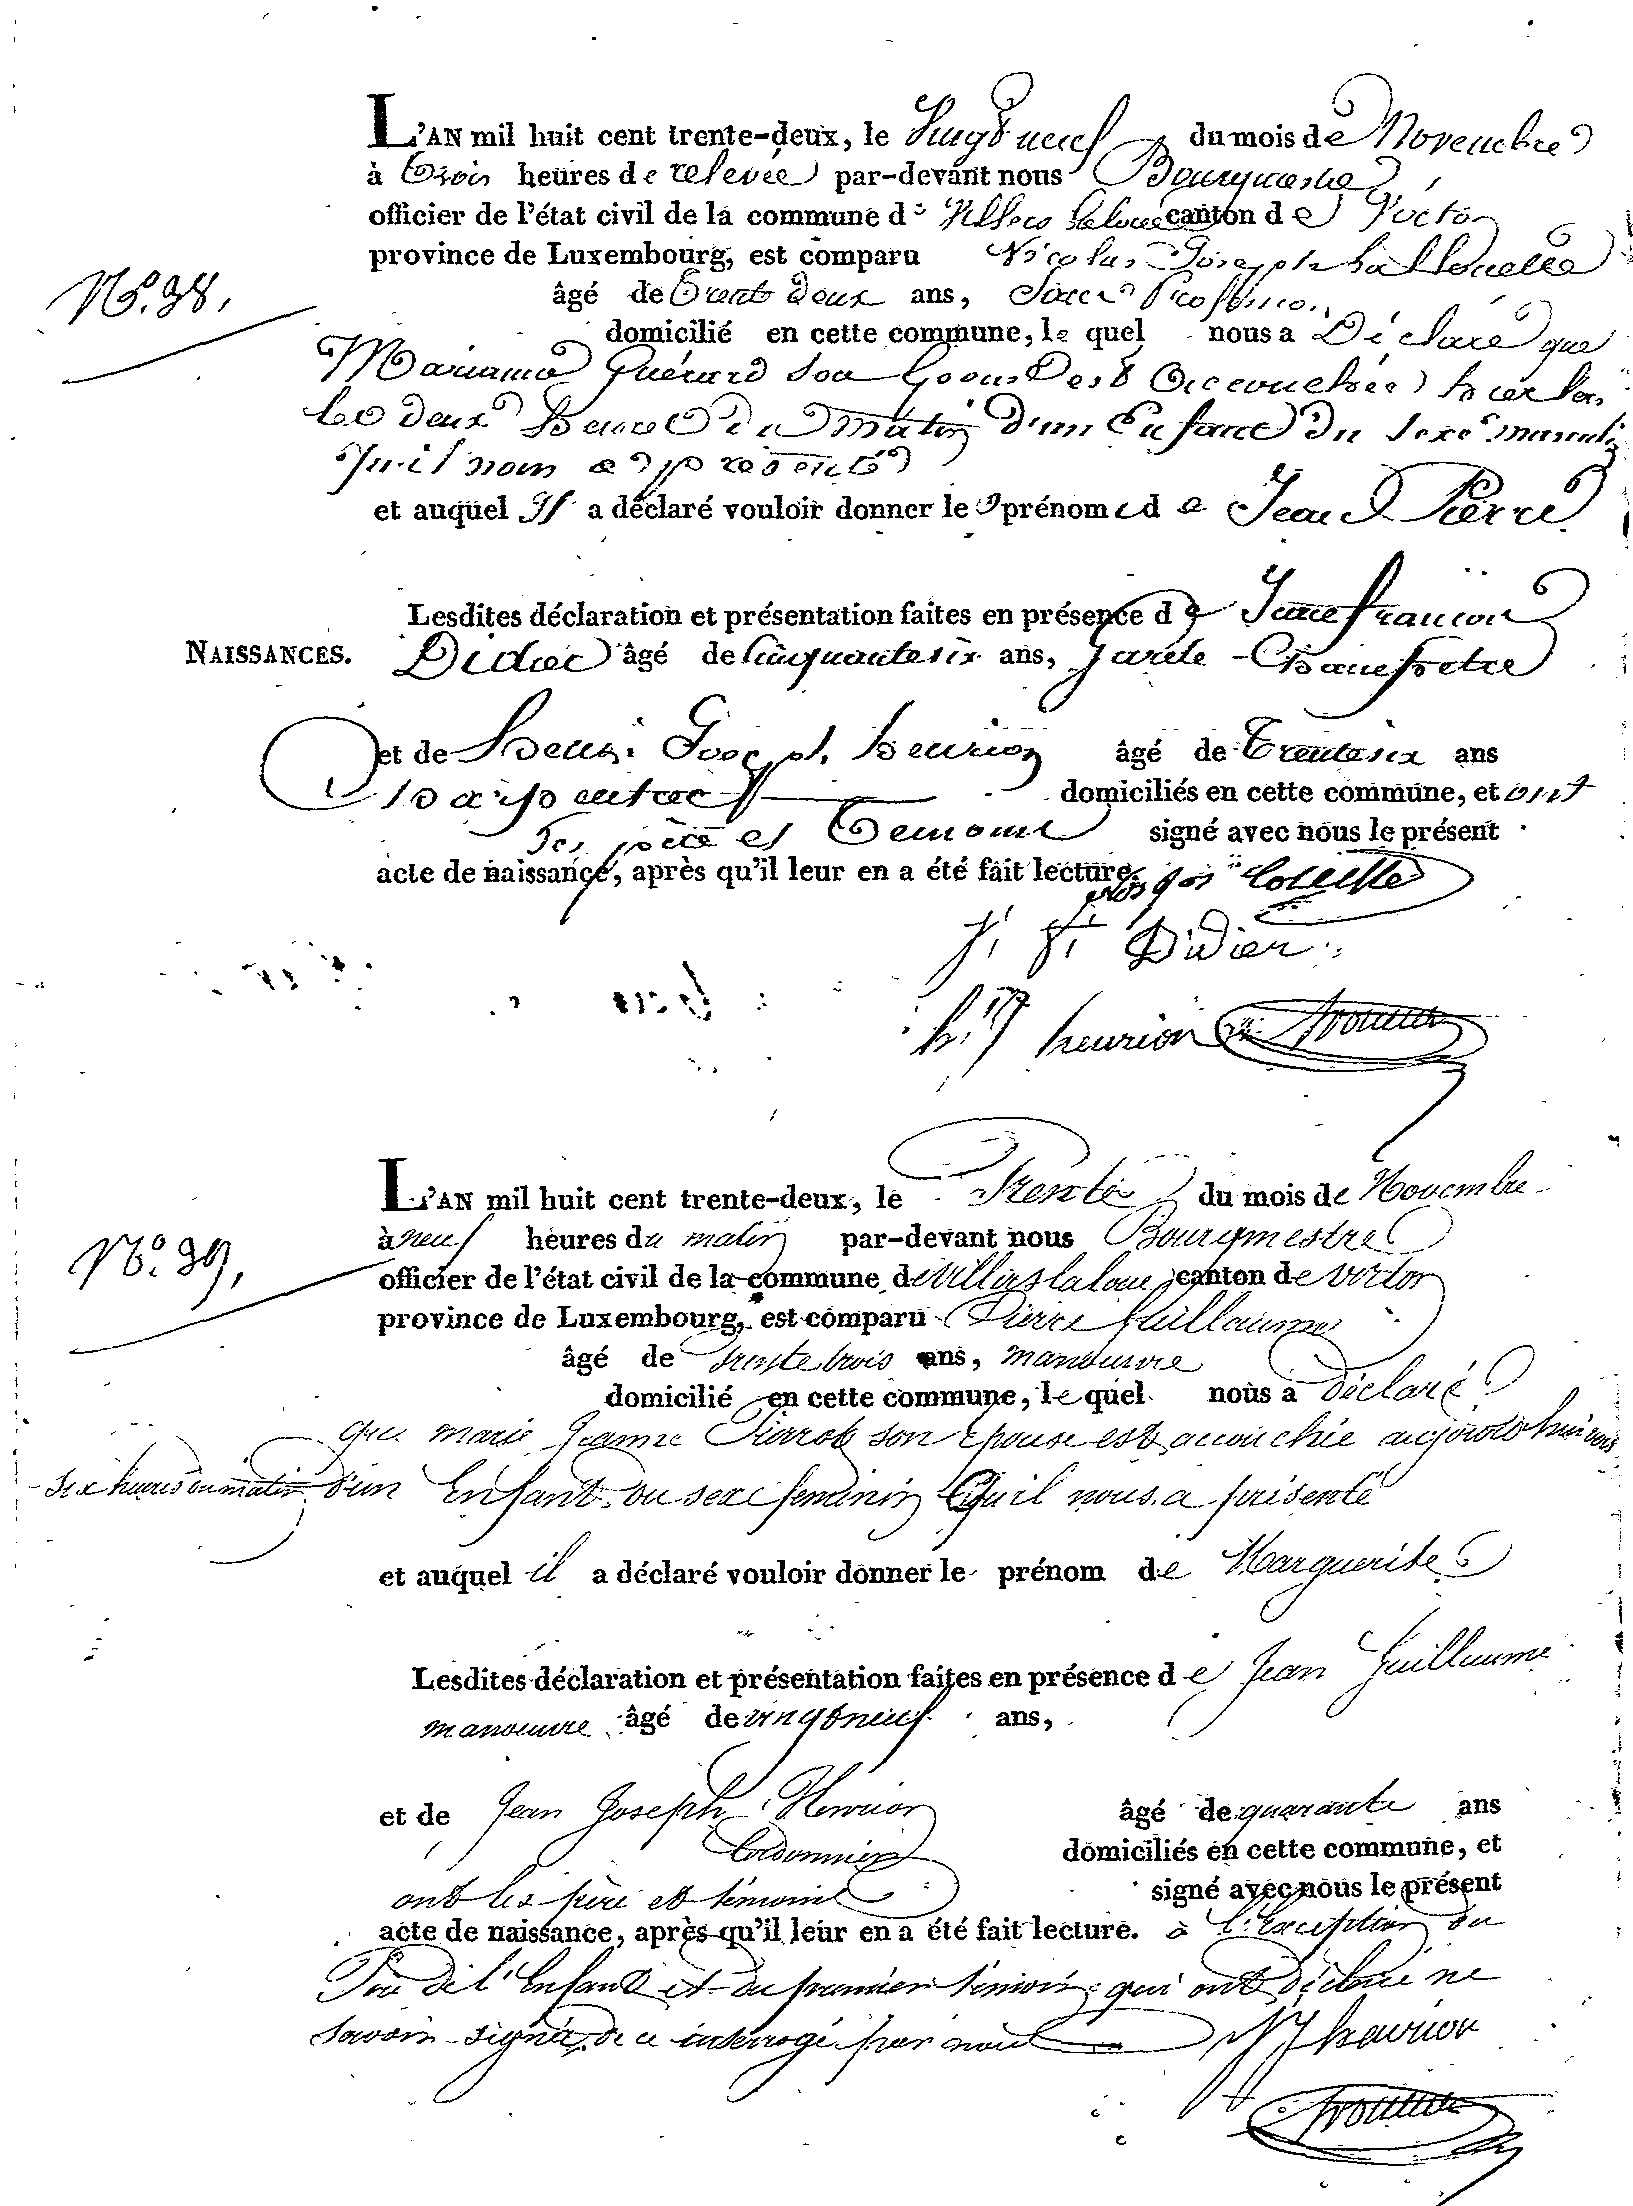 L'AN mil huit cent trente-deux, le Vingt neuf du mois de Novembre
à trois heures de relevée par-devant nous Bourgmestre
officier de l'état civil de la commune de Villers la loue canton de Virton
province de Luxembourg, est comparu Nicolas Joseph
N.° 38.
âgé de trente deux ans, Sans Profession
domicilié en cette commune, le quel nous a Déclaré que
Marianne Guérard son Epouse est accouchée hier
les deux heures du matin d'un Enfant du sexe masculin
qu'il nous a présenté
et auquel il a déclaré vouloir donner les prénoms de Jean Pierre
Lesdites déclaration et présentation faites en présence de Jean françois
NAISSANCES. Didier âgé de Cinquante six ans, garde Champêtre
et de henri Joseph henrion âgé de trente six ans
Charpentier domiciliés en cette commune, et ont
les père et Temoins signé avec nous le présent
acte de naissance, après qu'il leur en a été fait lecture.
J. F. Didier
h. J henrion
L'AN mil huit cent trente-deux, le Trente du mois de Novembre
à neuf heures du matin par-devant nous Bourgmestre
N.° 39.
officier de l'état civil de la commune de Villers la loue canton de virton
province de Luxembourg, est comparu Pierre Guillaume
âgé de trente trois ans, manoeuvre
domicilié en cette commune, le quel nous a déclaré
que marie Jeanne Pierrot son epouse est accouchée aujourd'hui vers
six heures du matin d'un Enfant du sexe feminin Qu'il nous a présenté
et auquel il a déclaré vouloir donner le prénom de Marguerite
Lesdites déclaration et présentation faites en présence de Jean Guillaume
manoeuvre âgé de vingt neuf ans,
et de Jean Joseph Henrion âgé de quarante ans
Cordonnier domiciliés en cette commune, et
ont les père et témoins signé avec nous le présent
acte de naissance, après qu'il leur en a été fait lecture. à l'Exception du
Père de l'Enfant et du premier témoin qui ont déclaré ne
savoir signer de ce interrogé par nous JJ henrion